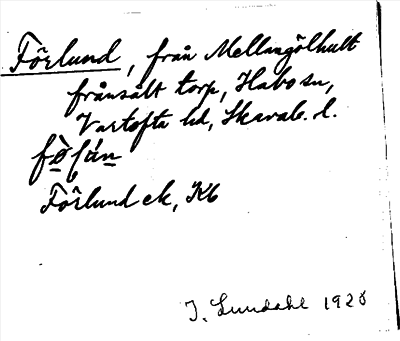 Förlund, från Mellangölhult
frånsålt torp, Habo sn,
Vartofta hd, Skarab. l.
Förlund ek, Kb
I. Lundahl 1920